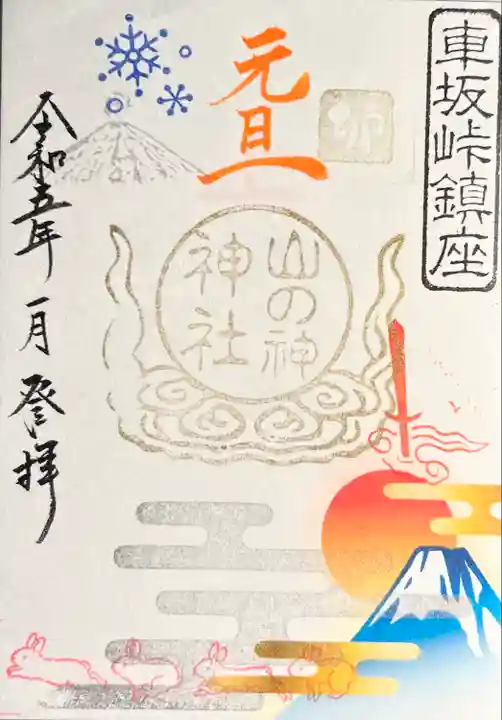 車坂峠鎮座
元旦
卯
山の神
神社
令和五年 一月 登拝